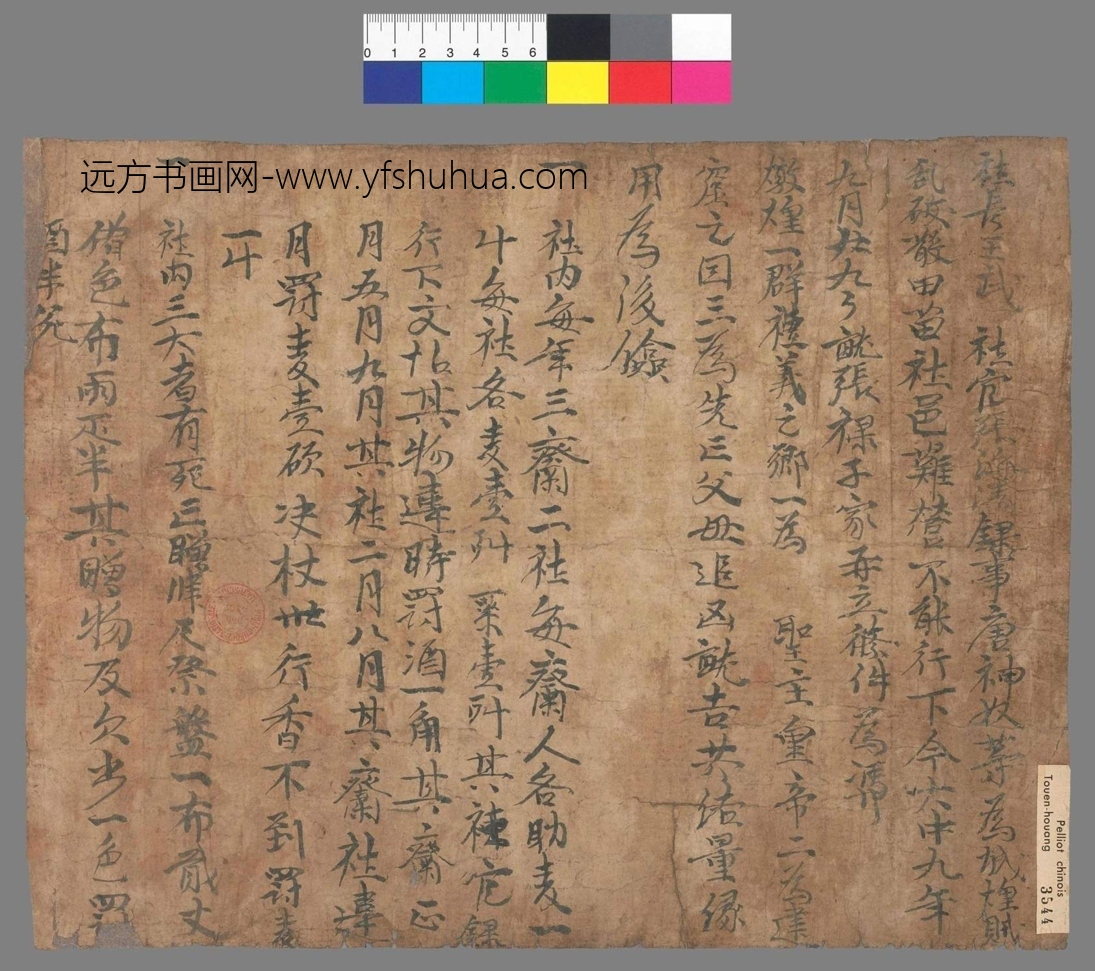 0 1 2 3 4 5 6
远方书画网-www.yfshuhua.com
社長王武 社官張海清 録事唐神奴等為城煌賊
乱破散田苗社邑難營不能行下今大中九年
九月廿九日就張禄子家再立條件為憑
燉煌一群禮義之鄉一為 聖主皇帝二為建
窟之因三為先亡父母追凶就吉共結量緣
用為後
一社内每年三齋二社每齋人各助麦一
斗每社各麦壹㪷 粟壹㪷其社官録
行下文帖其物違時罰酒一角其齋正
月五月九月其社二月八月其齋社違
月罰麦壹碩决杖卅行香不到罰麦
一斗
一社内三大者有死亡贈肆尺祭盤一布貳丈
借色布兩疋半其贈物及欠少一色罰
酒半瓮
Pelliot chinois
Touen-houang
3544